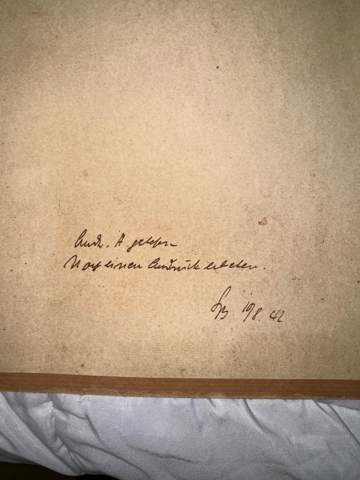 A gelesen
Noch einen Ausdruck erbeten.
19 8. 42